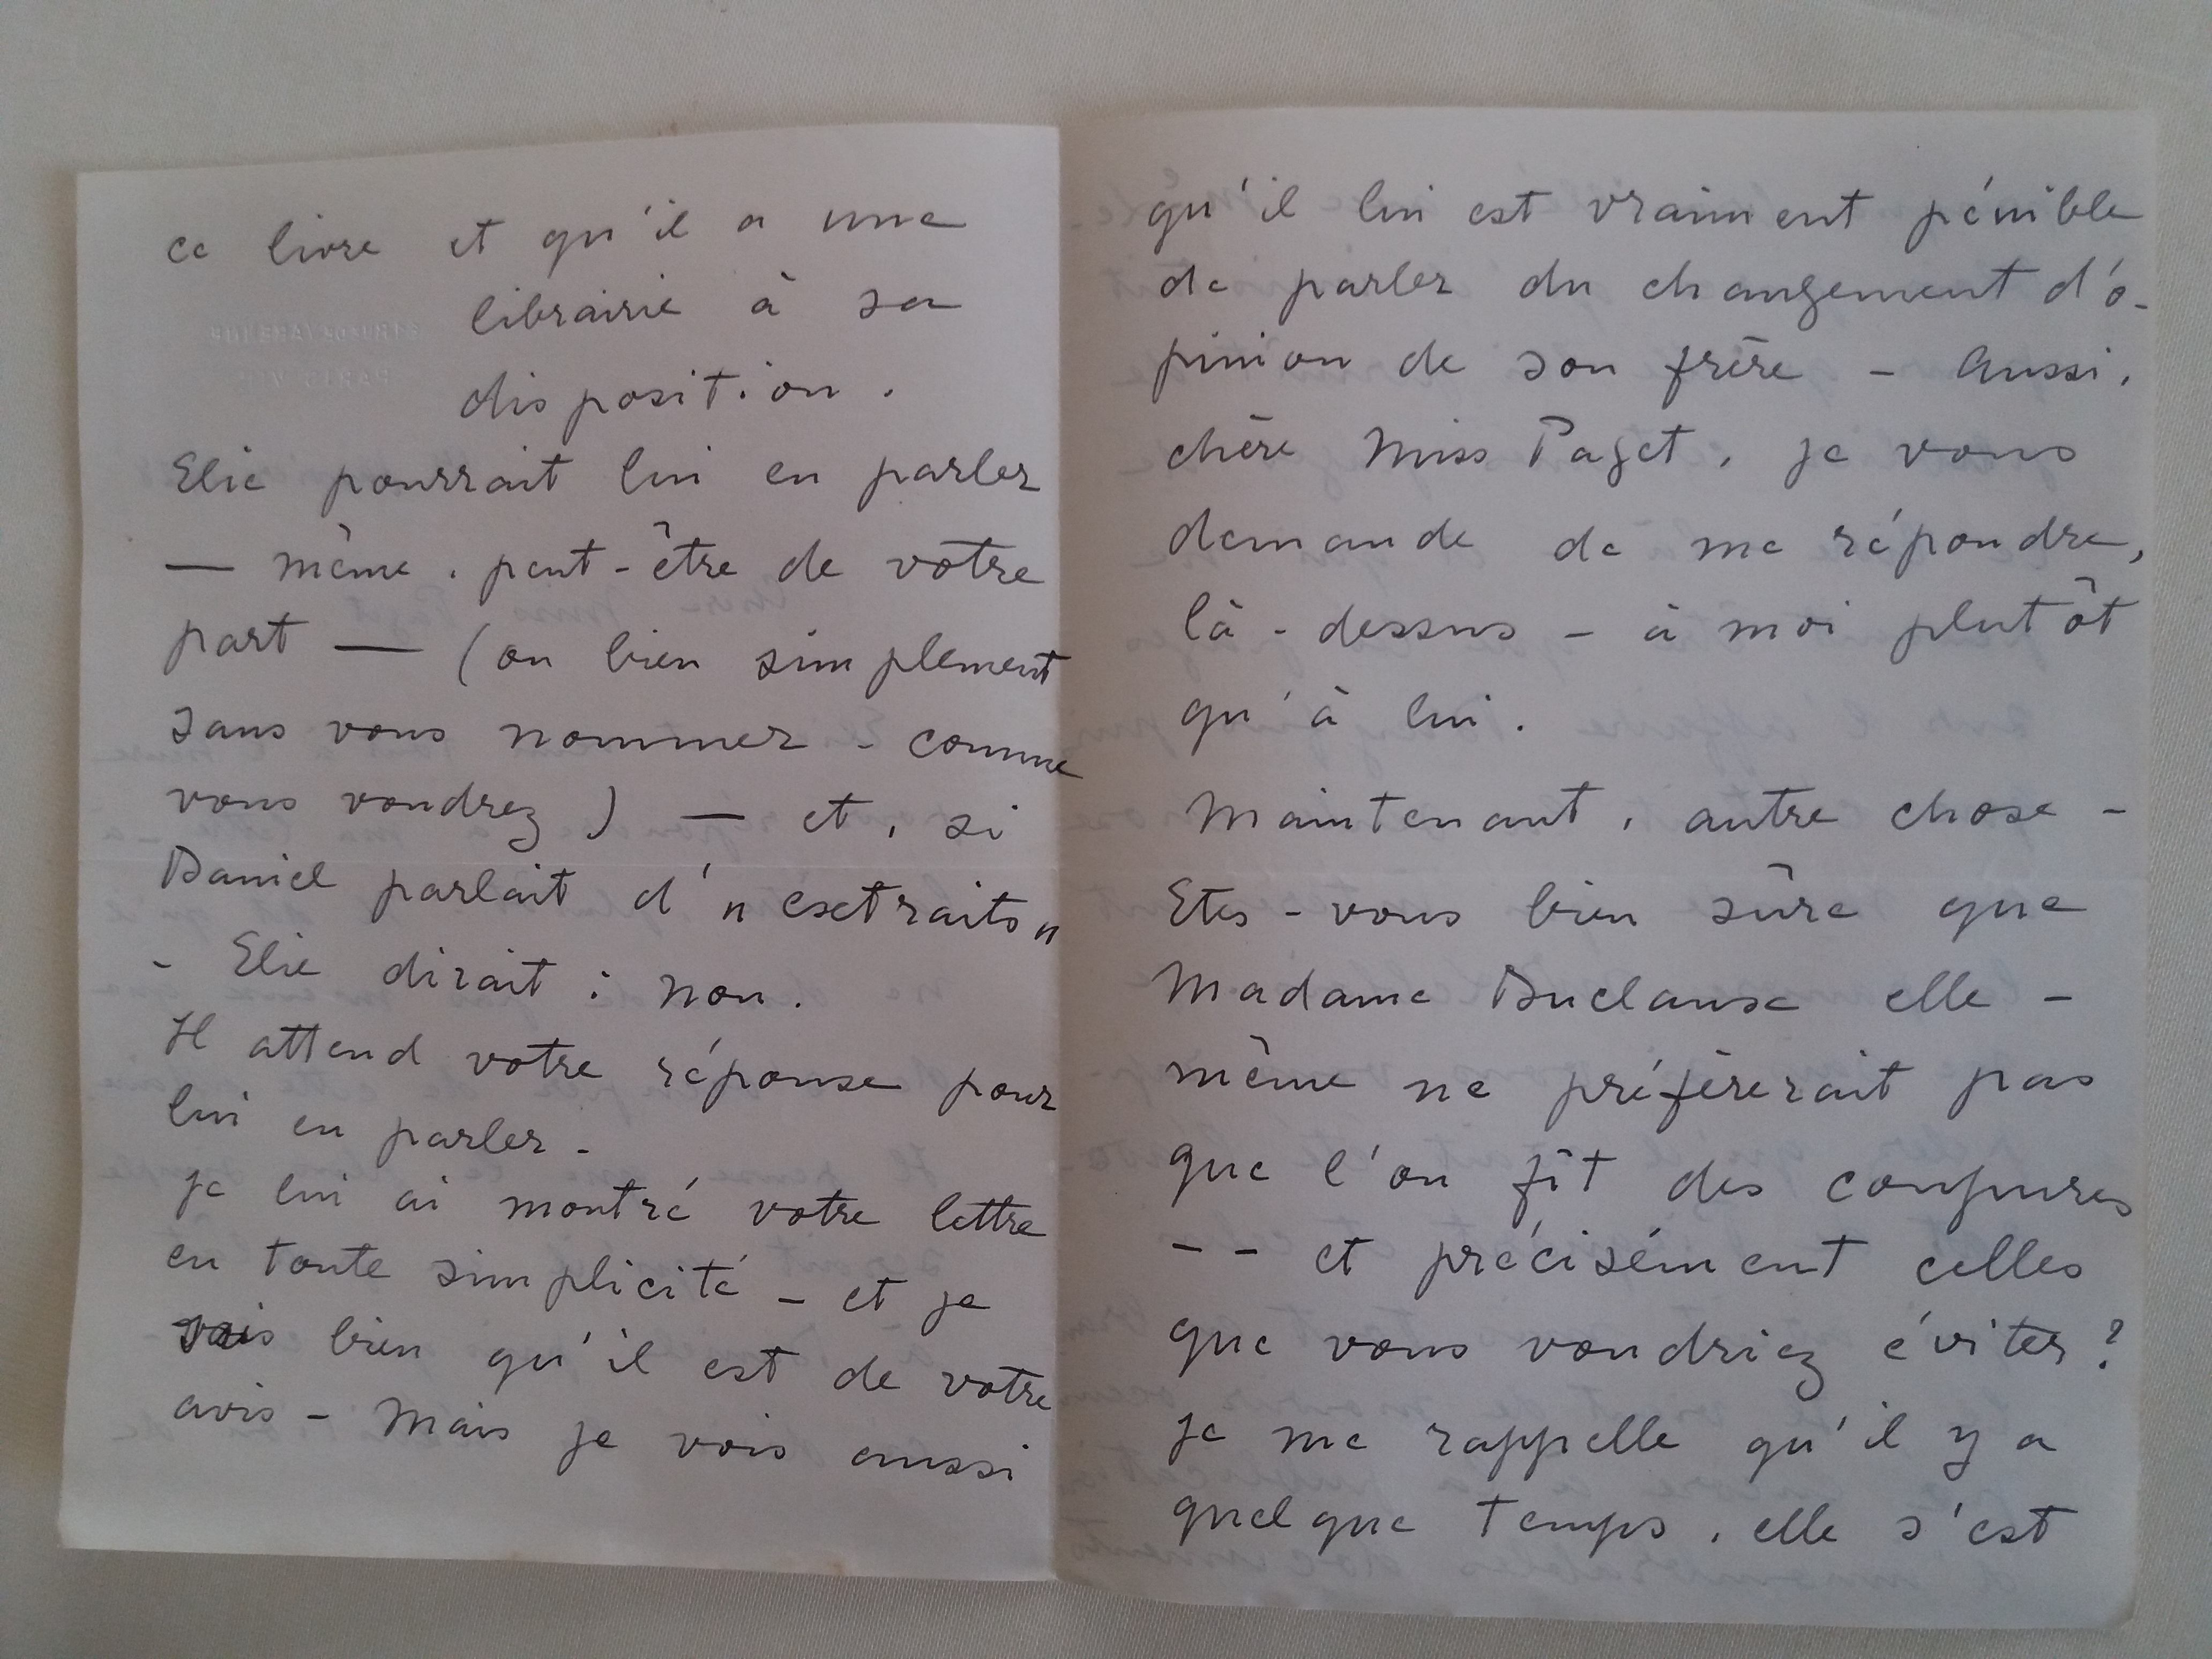 ce livre et qu'il a une
librairie à sa
disposition.
Elie pourrait lui en parler
— même, peut-être de votre
part — (ou bien simplement
sans vous nommer - comme
vous voudrez) — et, si
Daniel parlait d'"extraits"
- Elie dirait : non.
Il attend votre réponse pour
lui en parler -
Je lui ai montré votre lettre
en toute simplicité - et je
vais bien qu'il est de votre
avis - Mais je vois aussi
qu'il lui est vraiment pénible
de parler du changement d'o-
pinion de son frère - Aussi,
chère Miss Paget, je vous
demande de me répondre,
là-dessus - à moi plutôt
qu'à lui.
Maintenant, autre chose -
Etes-vous bien sûre que
Madame Duclaux elle-
même ne préfèrerait pas
que l'on fît des coupures
- - et précisément celles
que vous voudriez éviter ?
Je me rappelle qu'il y a
quelque temps, elle s'est